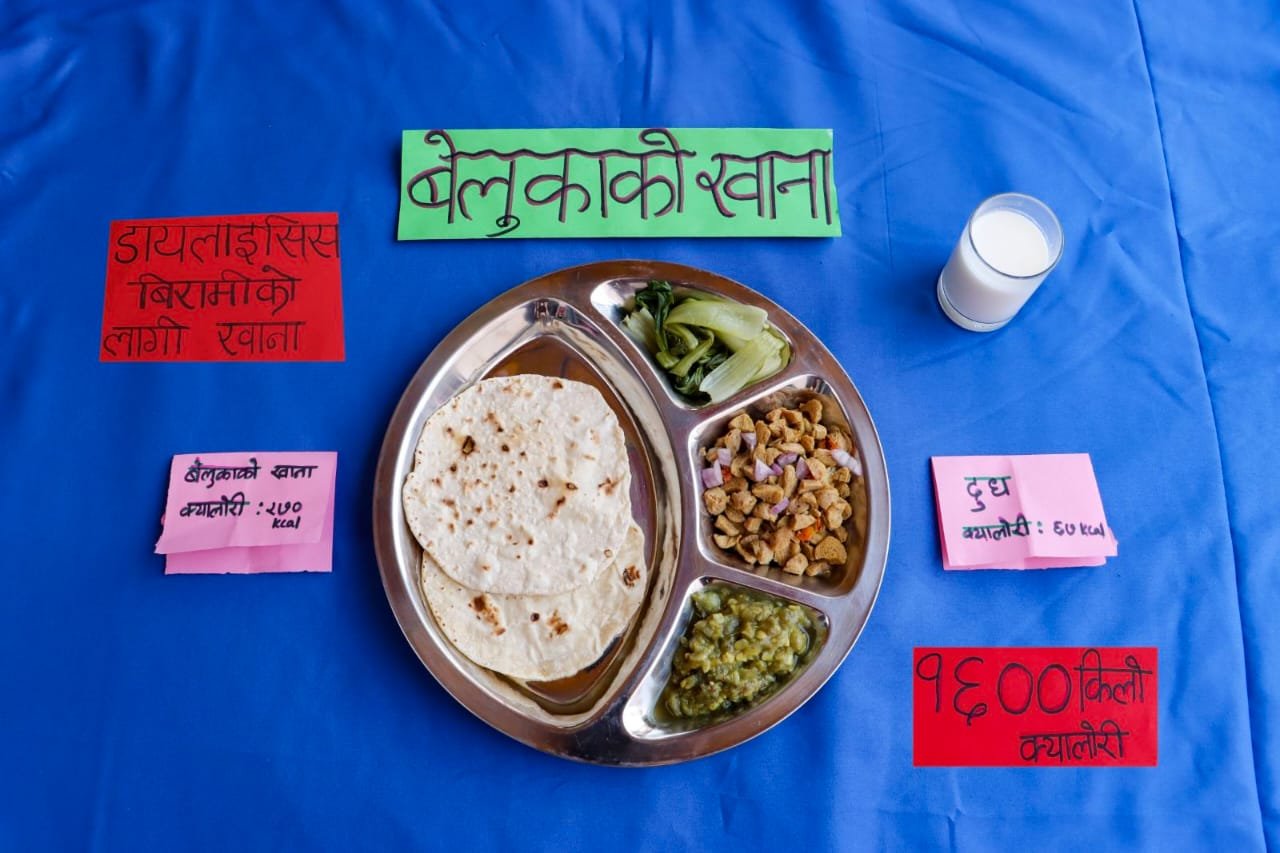 बेलुकाको खाना
डायलाइसिस
बिरामीको
लागी खाना
बेलुकाको खाना
क्यालोरी : २७०
kcal
दुध
क्यालोरी : ६७ kcal
१६०० किलो
क्यालोरी